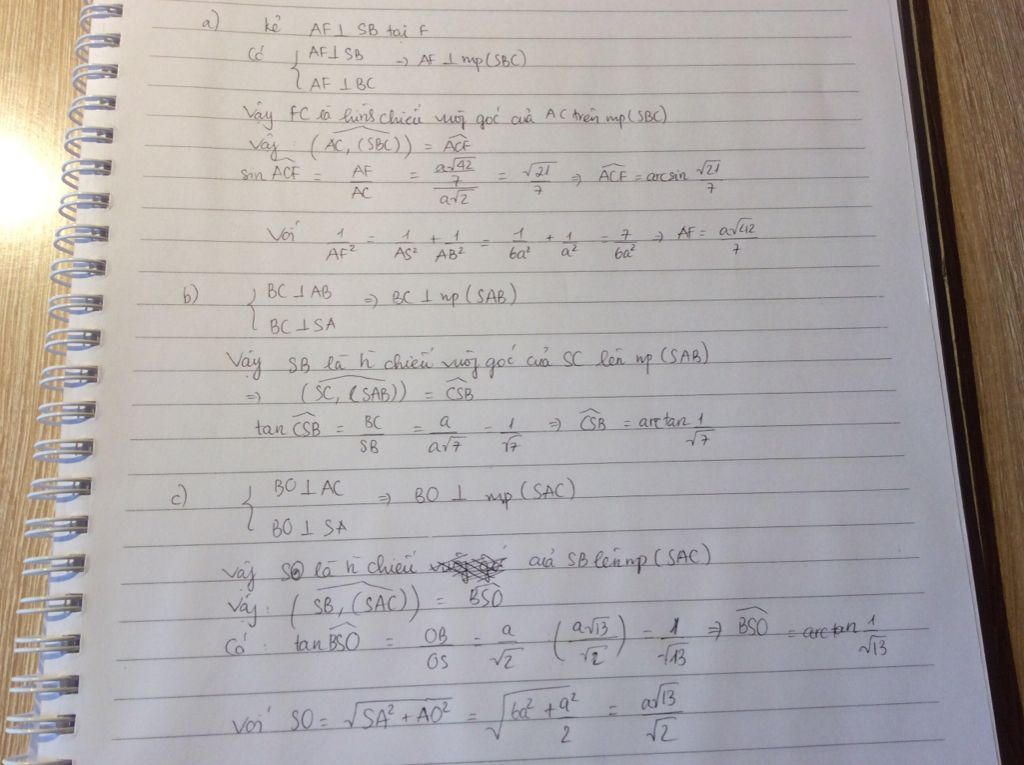 a) kẻ AF ⊥ SB tại F
Có { AF ⊥ SB
AF ⊥ BC => AF ⊥ mp(SBC)
Vậy FC là hình chiếu vuông góc của AC trên mp(SBC)
Vậy: (AC, (SBC)) = ACF
sin ACF = AF/AC = (a√42/7)/(a√2) = √21/7 => ACF = arcsin √21/7
Với 1/AF² = 1/AS² + 1/AB² = 1/6a² + 1/a² = 7/6a² => AF = a√42/7
b) { BC ⊥ AB
BC ⊥ SA => BC ⊥ mp(SAB)
Vậy SB là h chiếu vuông góc của SC lên mp(SAB)
=> (SC, (SAB)) = CSB
tan CSB = BC/SB = a/a√7 = 1/√7 => CSB = arctan 1/√7
c) { BO ⊥ AC
BO ⊥ SA => BO ⊥ mp(SAC)
Vậy SO là h chiếu của SB lên mp(SAC)
Vậy: (SB, (SAC)) = BSO
Có: tan BSO = OB/OS = a/√2 : (a√13/√2) = 1/√13 => BSO = arctan 1/√13
Với SO = √(SA² + AO²) = √(6a² + a²/2) = a√13/√2